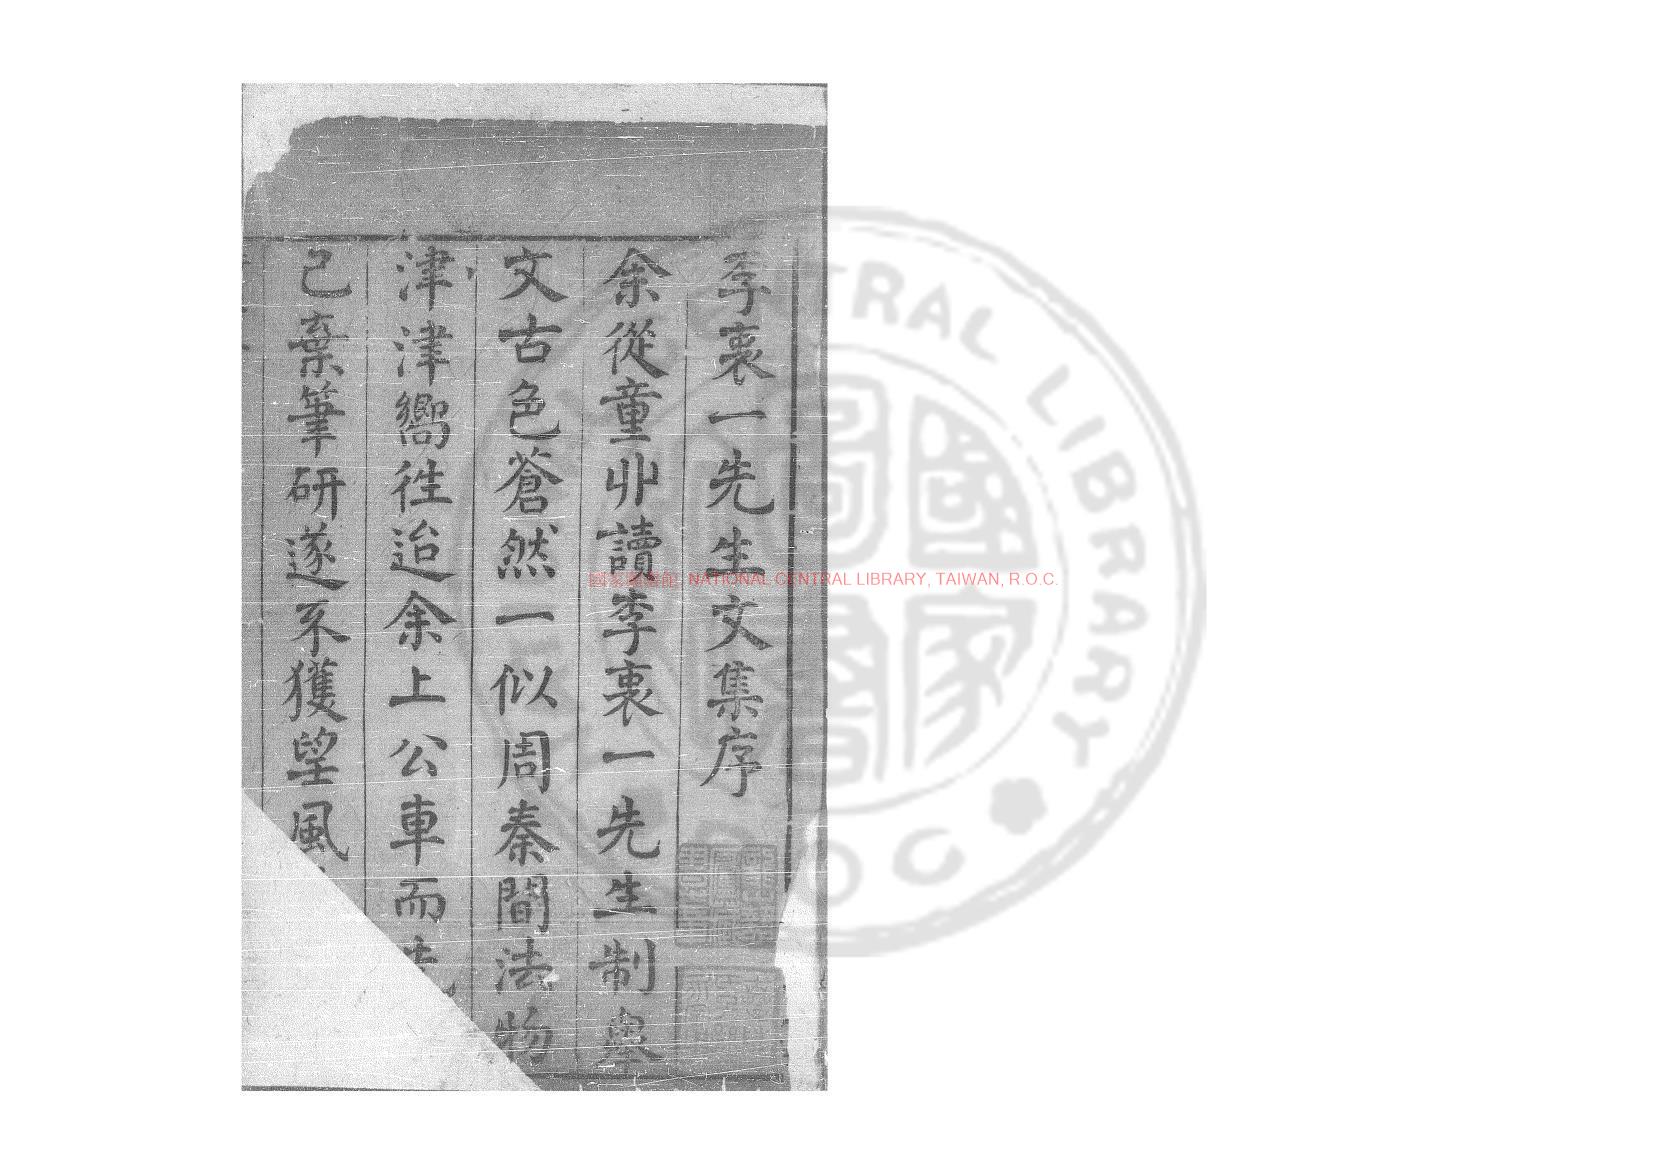 李裹一先生文集序
余從童丱讀李裹一先生制舉
文古色蒼然一似周秦間法物
津津嚮徃迨余上公車而先
已棄筆研遂不獲望風
國家圖書館, NATIONAL CENTRAL LIBRARY, TAIWAN, R.O.C.
CENTRAL LIBRARY
國家